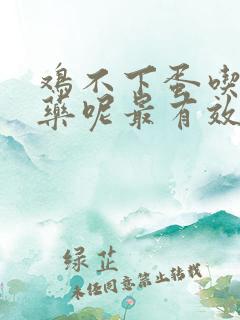 鸡不下蛋喫
药呢最有效
绿芷
未经同意禁止转载